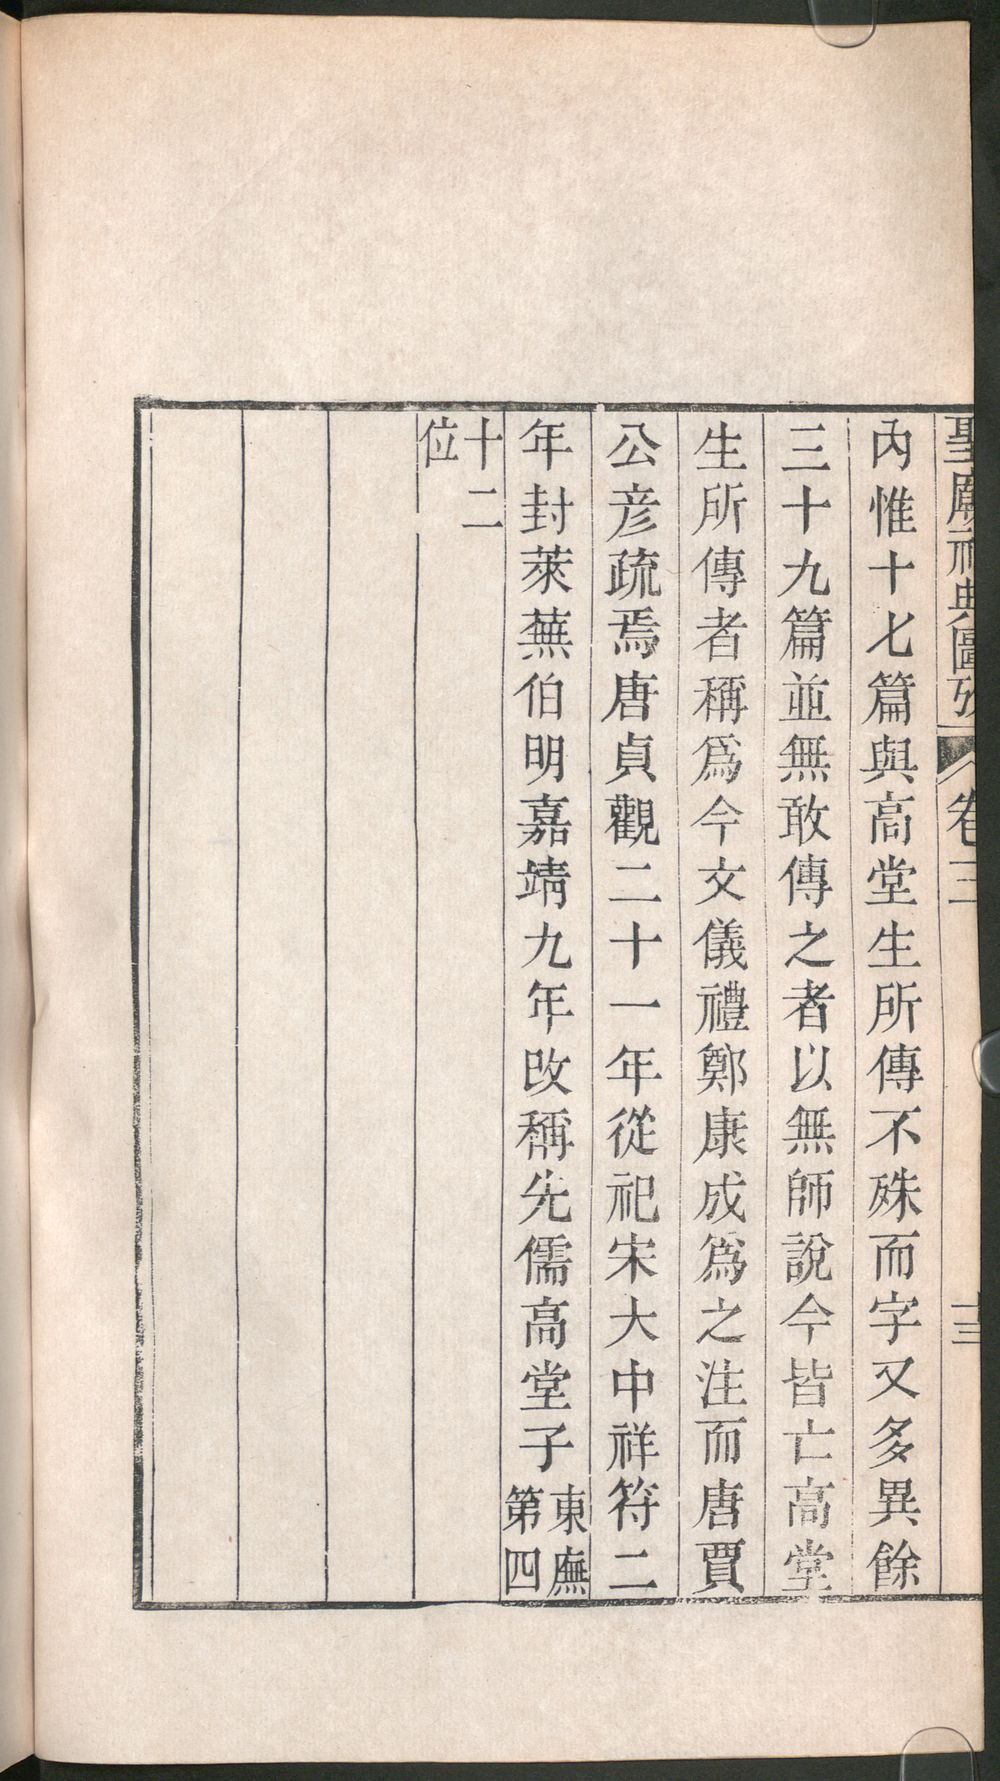 聖廟祀典圖攷 卷三 十三
內惟十七篇與高堂生所傳不殊而字又多異餘
三十九篇並無敢傳之者以無師說今皆亡高堂
生所傳者稱爲今文儀禮鄭康成爲之注而唐賈
公彦疏焉唐貞觀二十一年從祀宋大中祥符二
年封萊蕪伯明嘉靖九年改稱先儒高堂子東廡第四
十二位